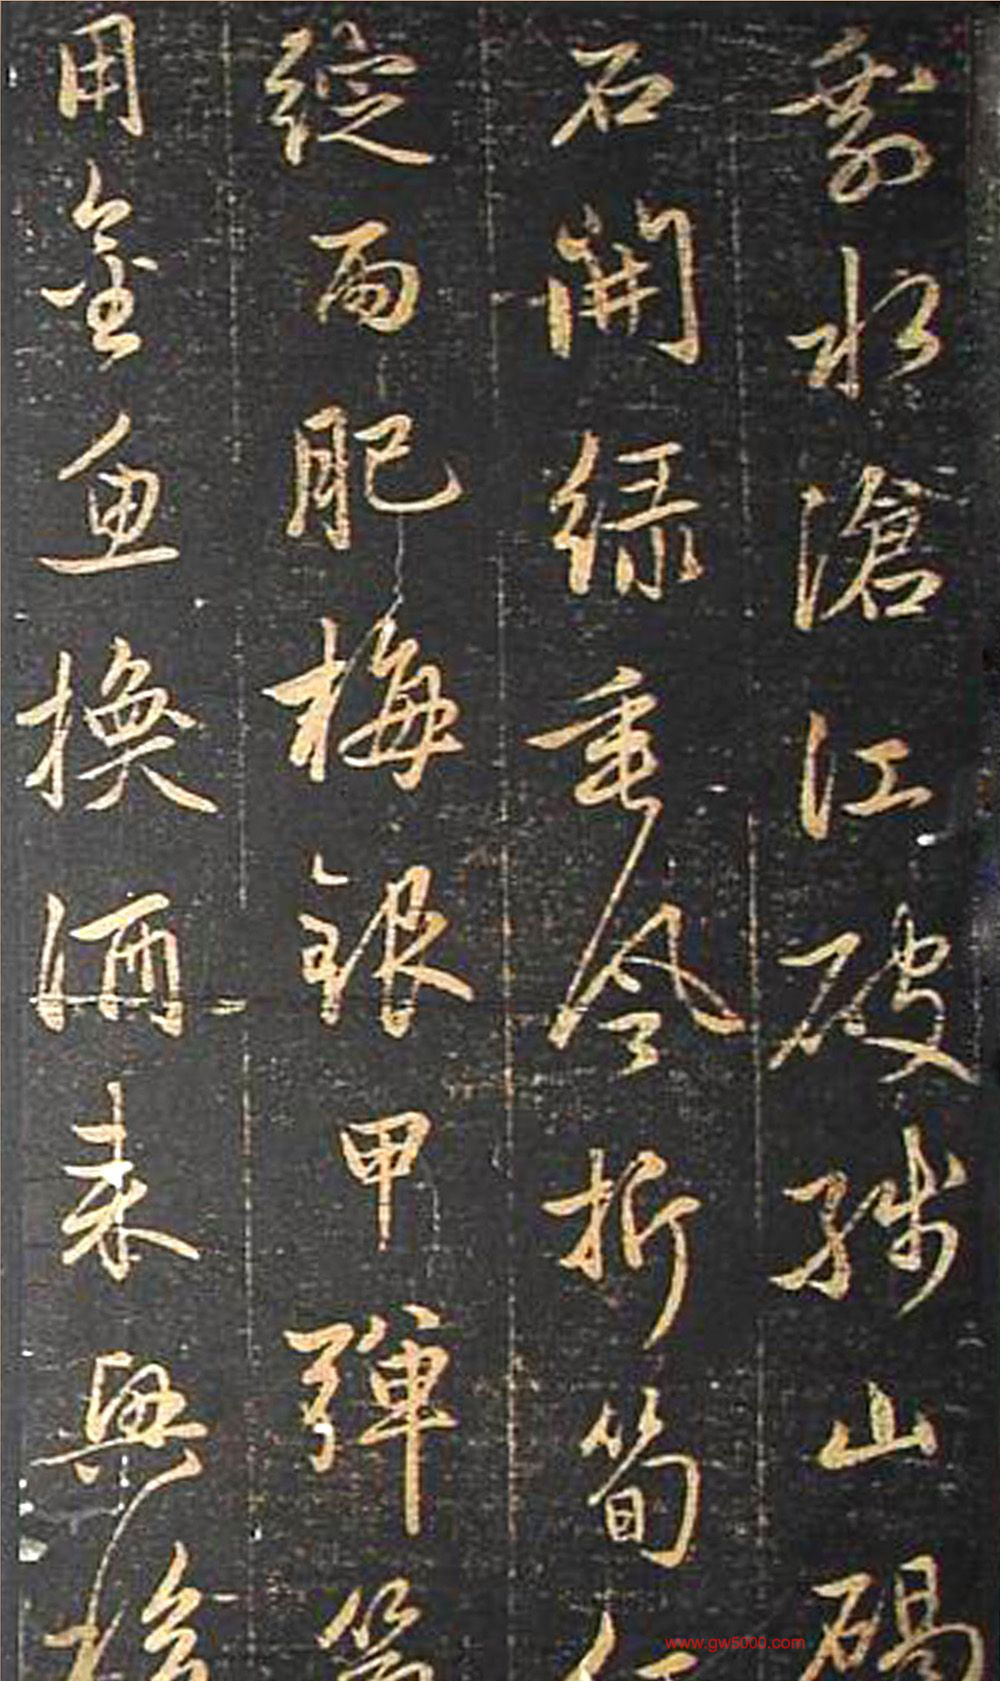 剩水滄江破殘山碣
石開緑垂風折筍
綻雨肥梅銀甲彈箏
用金魚換酒来興移
www.gw5000.com